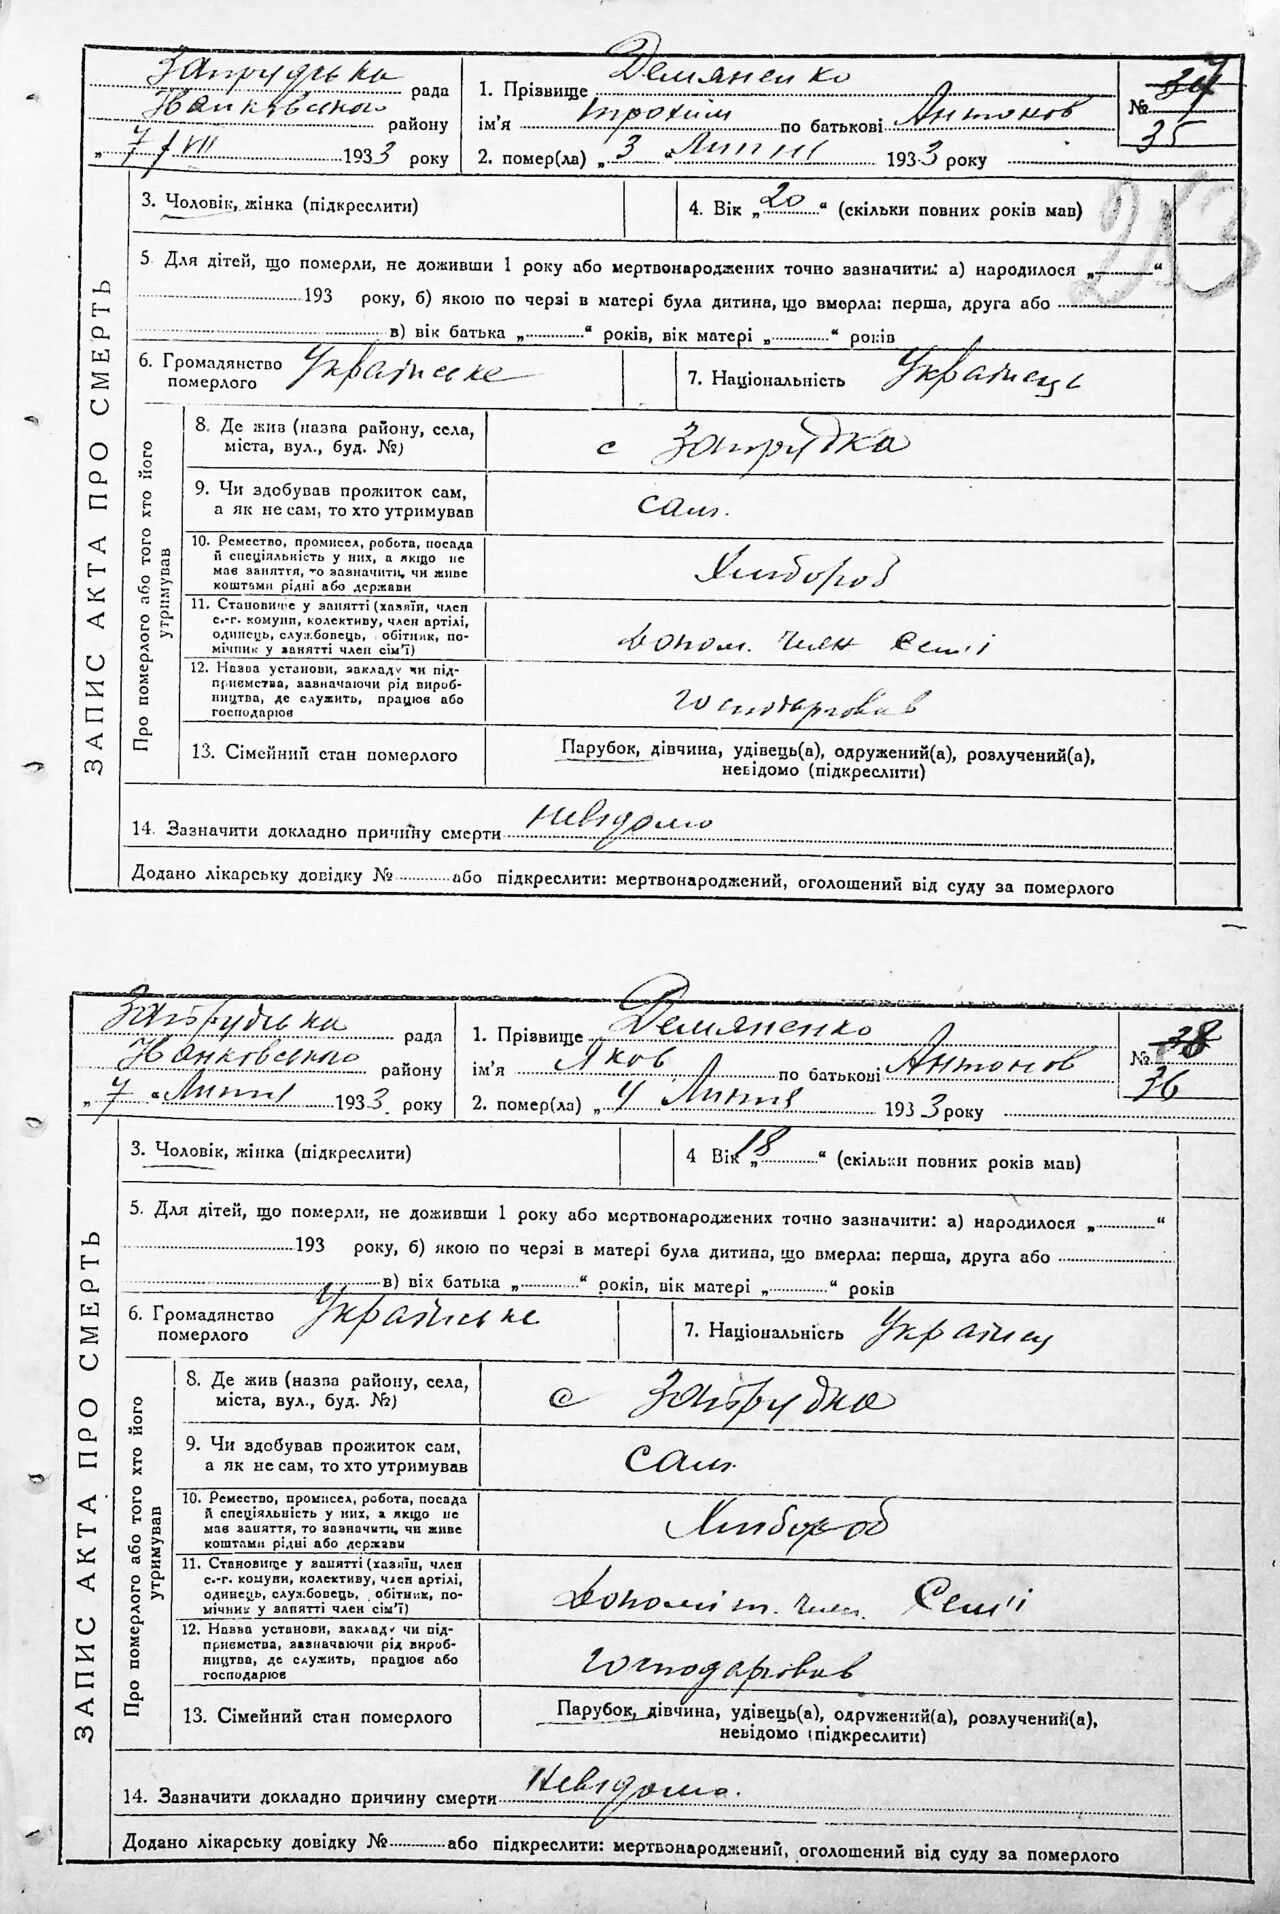 Запрудська рада
Іванківського району
„7/VII 1933 року
1. Прізвище Демяненко
ім'я Трохим по батькові Антонов
2. помер(ла) „3“ Липня 1933 року
№ 37
35
213
ЗАПИС АКТА ПРО СМЕРТЬ
3. Чоловік, жінка (підкреслити)
4. Вік „20“ (скільки повних років мав)
5. Для дітей, що померли, не доживши 1 року або мертвонароджених точно зазначити: а) народилося „ “
193 року, б) якою по черзі в матері була дитина, що вмерла: перша, друга або
в) вік батька „ “ років, вік матері „ “ років
6. Громадянство
померлого Українське
7. Національність Українець
Про померлого або того хто його
утримував
8. Де жив (назва району, села,
міста, вул., буд. №)
с Запрудка
9. Чи здобував прожиток сам,
а як не сам, то хто утримував
сам.
10. Ремество, промисел, робота, посада
й спеціяльність у них, а якщо не
має заняття, то зазначити, чи живе
коштами рідні або держави
Хлибороб
11. Становище у занятті (хазяїн, член
с.-г. комуни, колективу, член артілі,
одинець, службовець, обітник, по-
мічник у занятті член сім'ї)
допом. член семії
12. Назва установи, закладу чи під-
приємства, зазначаючи рід вироб-
ництва, де служить, працює або
господарює
господарював
13. Сімейний стан померлого
Парубок, дівчина, удівець(а), одружений(а), розлучений(а),
невідомо (підкреслити)
14. Зазначити докладно причину смерти невідомо
Додано лікарську довідку № або підкреслити: мертвонароджений, оголошений від суду за померлого
Запрудська рада
Іванковського району
„7“ Липня 1933 року
1. Прізвище Демяненко
ім'я Яков по батькові Антонов
2. помер(ла) „4 Липня 1933 року
№ 38
36
ЗАПИС АКТА ПРО СМЕРТЬ
3. Чоловік, жінка (підкреслити)
4 Вік „18“ (скільки повних років мав)
5. Для дітей, що померли, не доживши 1 року або мертвонароджених точно зазначити: а) народилося „ “
193 року, б) якою по черзі в матері була дитина, що вмерла: перша, друга або
в) вік батька „ “ років, вік матері „ “ років
6. Громадянство
померлого Українське
7. Національність Українец
Про померлого або того хто його
утримував
8. Де жив (назва району, села,
міста, вул., буд. №)
с Запрудка
9. Чи здобував прожиток сам,
а як не сам, то хто утримував
сам
10. Ремество, промисел, робота, посада
й спеціяльність у них, а якщо не
має заняття, то зазначити, чи живе
коштами рідні або держави
Хлибороб
11. Становище у занятті (хазяїн, член
с.-г. комуни, колективу, член артілі,
одинець, службовець, обітник, по-
мічник у занятті член сім'ї)
допоміж. член. Семії
12. Назва установи, закладу чи під-
приємства, зазначаючи рід вироб-
ництва, де служить, працює або
господарює
господарював
13. Сімейний стан померлого
Парубок, дівчина, удівець(а), одружений(а), розлучений(а),
невідомо (підкреслити)
14. Зазначити докладно причину смерти Невідомо.
Додано лікарську довідку № або підкреслити: мертвонароджений, оголошений від суду за померлого